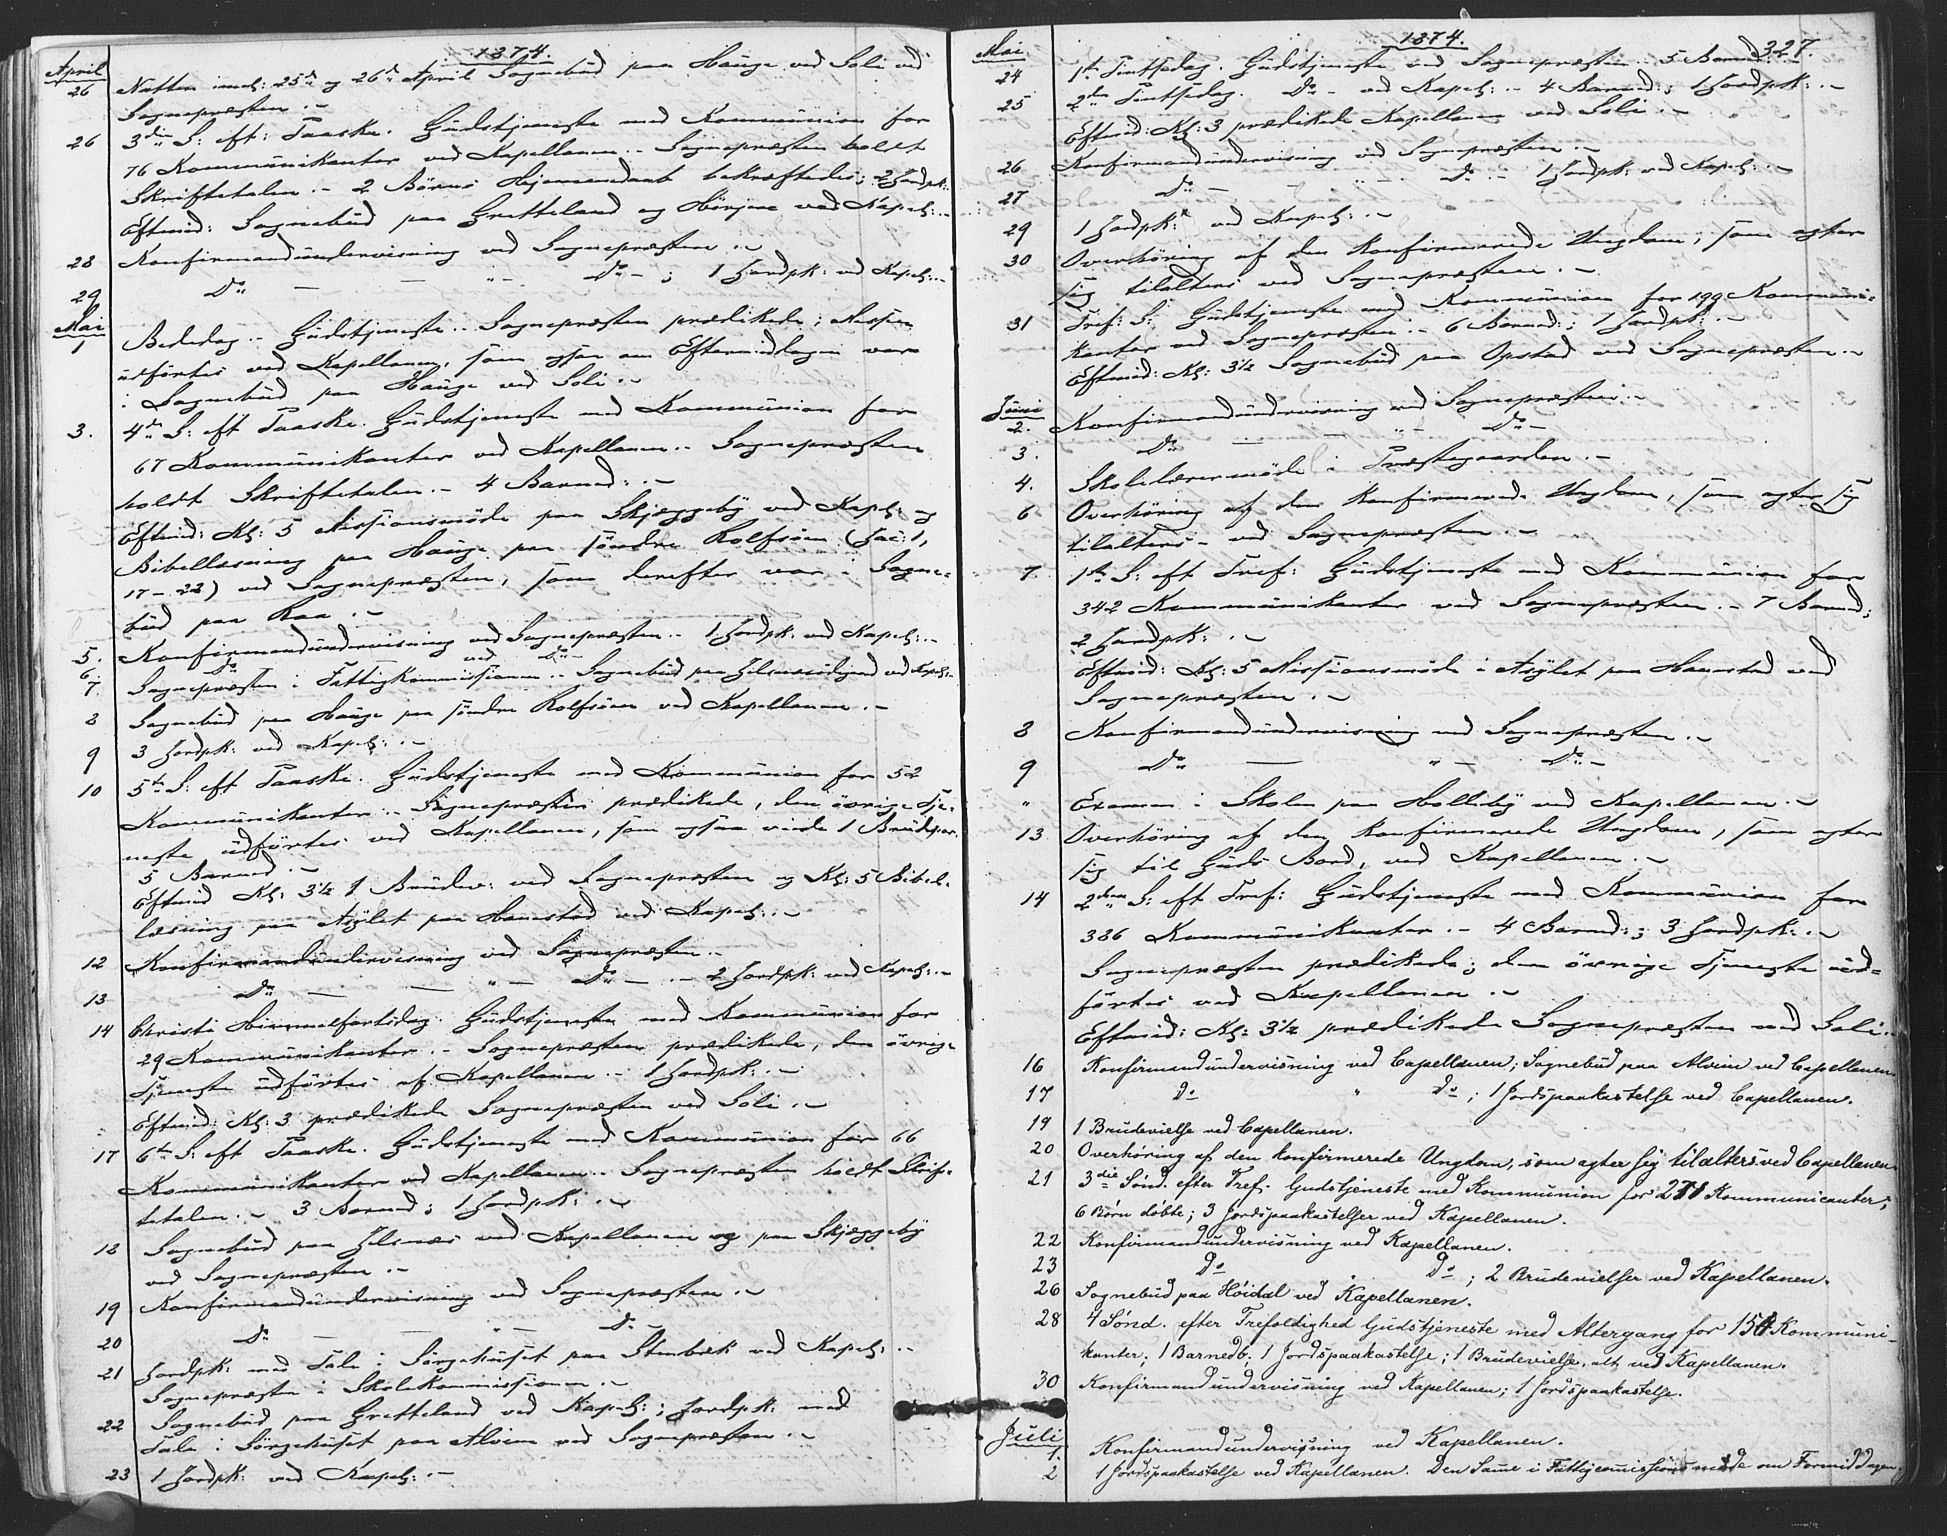 1874.
April
26 Natten mel: 25de og 26de April Sognebud paa Hauge ved Soli ved
Sognepræsten. –
26 3die S: eft: Paaske. Gudstjeneste med Kommunion for
76 Kommunikanter ved Kapellanen. – Sognepræsten holdt
Skriftetalen. – 2 Børns Hjemmedaab bekræftedes; 2 Jordpk:
Eftmid: Sognebud paa Gretteland og Hørjen ved Kapel: –
28 Konfirmandundervisning ved Sognepræsten. –
29 Do — — " – Do – ; 1 Jordpk: ved Kapel: –
Mai
1 Bededag. – Gudstjeneste. – Sognepræsten prædikede; Messen
udførtes ved Kapellanen, som ogsaa om Eftermiddagen var
i Sognebud paa Hauge ved Soli. –
3. 4de S: eft Paaske. Gudstjeneste med Kommunion for
67 Kommunikanter ved Kapellanen. – Sognepræsten
holdt Skriftetalen. – 4 Barned: –
Eftmid: Kl: 5 Missionsmøde paa Skjæggeby ved Kapel: og
Bibellæsning paa Hauge paa søndre Rolfsøen (Jac: 1,
17 – 22) ved Sognepræsten, som derefter var i Sogne-
bud paa Raa. –
5. Konfirmandundervisning ved Sognepræsten. – 1 Jordpk: ved Kapel: –
6 Do — ved Do –
7. Sognepræsten i Fattigkommissionen. – Sognebud paa ved Kapel: –
8 Sognebud paa Hauge paa søndre Rolfsøen ved Kapellanen. –
9 3 Jordpk: ved Kapel: –
10 5te S: eft Paaske. Gudstjeneste med Kommunion for 52
Kommunikanter. – Sognepræsten prædikede, den øvrige Tje-
neste udførtes ved Kapellanen, som ogsaa viede 1 Brudepar.
5 Barned. –
Eftmid Kl: 3½ 1 Brudev: ved Sognepræsten og Kl: 5 Bibel-
læsning paa Asylet paa Hannestad ved Kapel: –
12 Konfirmandundervisning ved Sognepræsten. –
13 Do — — " – Do – . – 2 Jordpk: ved Kapel: –
14 Christi Himmelfartsdag. Gudstjeneste med Kommunion for
29 Kommunikanter. – Sognepræsten prædikede, den øvrige
Tjeneste udførtes af Kapellanen. – 1 Jordpk: –
Eftmid: Kl: 3 prædikede Sognepræsten ved Soli. –
17 6te S: eft Paaske. Gudstjeneste med Kommunion for 66
Kommunikanter ved Kapellanen. – Sognepræsten holdt Skrif-
tetalen. – 3 Barned; 1 Jordpk: –
18 Sognebud paa Ilsnæs ved Kapellanen og paa Skjæggeby
ved Sognepræsten. –
19 Konfirmandundervisning ved Sognepræsten. –
20 Do — — " – Do –
21 Jordpk: med Tale i Sørgehuset paa Stenbæk ved Kapel: –
Sognepræsten i Skolekommissionen. –
22 Sognebud paa Gretteland ved Kapel: ; Jordpk: med
Tale i Sørgehuset paa Alvim ved Sognepræsten. –
23 1 Jordpk: ved Kapel: –
1874. 327.
Mai
24 1ste Pintsedag. Gudstjeneste ved Sognepræsten. 5 Barned: –
25 2den Pintsedag. Do – ved Kapel: – 4 Barned: ; 1 Jordpk: –
Eftmid: Kl: 3 prædikede Kapellanen ved Soli. –
26 Konfirmandundervisning ved Sognepræsten. –
27 Do – " – Do – 1 Jordpk: ved Kapel: –
29 1 Jordpk: ved Kapel: –
30 Overhøring af den konfirmerede Ungdom, som agter
sig tilalters ved Sognepræsten. –
31 Tref: S: Gudstjeneste med Kommunion for 199 Kommuni-
kanter ved Sognepræsten. – 6 Barned: ; 1 Jordpk: –
Eftmid: Kl: 3½ Sognebud paa Opstad ved Sognepræsten. –
Juni
2. Konfirmandundervisning ved Sognepræsten. –
3. Do — — " – Do –
4. Skolelærermøde i Præstegaarden. –
6 Overhøring af den konfirmerede Ungdom, som agter sig
tilalters – ved Sognepræsten. –
7. 1ste S: eft Tref: Gudstjeneste med Kommunion for
342 Kommunikanter ved Sognepræsten. – 7 Barned;
2 Jordpk: –
Eftmid: Kl: 5 Missionsmøde i Asylet paa Hannestad ved
Sognepræsten. –
8 Konfirmandundervisning ved Sognepræsten. –
9 Do — " – Do –
" Examen i Skolen paa Holleby ved Kapellanen. –
13 Overhøring af den konfirmerede Ungdom, som agter
sig til Guds Bord, ved Kapellanen. –
14 2den S: eft Tref: Gudstjeneste med Kommunion for
386 Kommunikanter. – 4 Barned: ; 3 Jordpk: –
Sognepræsten prædikede; den øvrige Tjeneste ud-
førtes ved Kapellanen. –
Eftmid: Kl: 3½ prædikede Sognepræsten ved Soli. –
16 Konfirmandundervisning ved Capellanen; Sognebud paa Alvim ved Capellanen
17 Do " Do ; 1 Jordspaakastelse ved Capellanen.
19 1 Brudevielse ved Capellanen.
20 Overhøring af den konfirmerede Ungdom, som agter sig tilalters ved Capellanen.
21 3die Sønd. efter Tref. Gudstjeneste med Kommunion for 271 Kommunicanter;
6 Børn døbte; 3 Jordspaakastelser ved Kapellanen.
22 Konfirmandundervisning ved Kapellanen.
23 Do " Do ; 2 Brudevielser ved Kapellanen.
26 Sognebud paa Høidal ved Kapellanen.
28 4 Sønd. efter Trefoldighed Gudstjeneste med Altergang for 154 Kommuni-
kanter; 1 Barnedb; 1 Jordspaakastelse; 1 Brudevielse, alt ved Kapellanen.
30 Konfirmandundervisning ved Kapellanen; 1 Jordspaakastelse.
Juli
1. Konfirmandundervisning ved Kapellanen.
2 1 Jordspaakastelse ved Kapellanen. Den Same i Fattigcomissionsmøde om Formiddagen